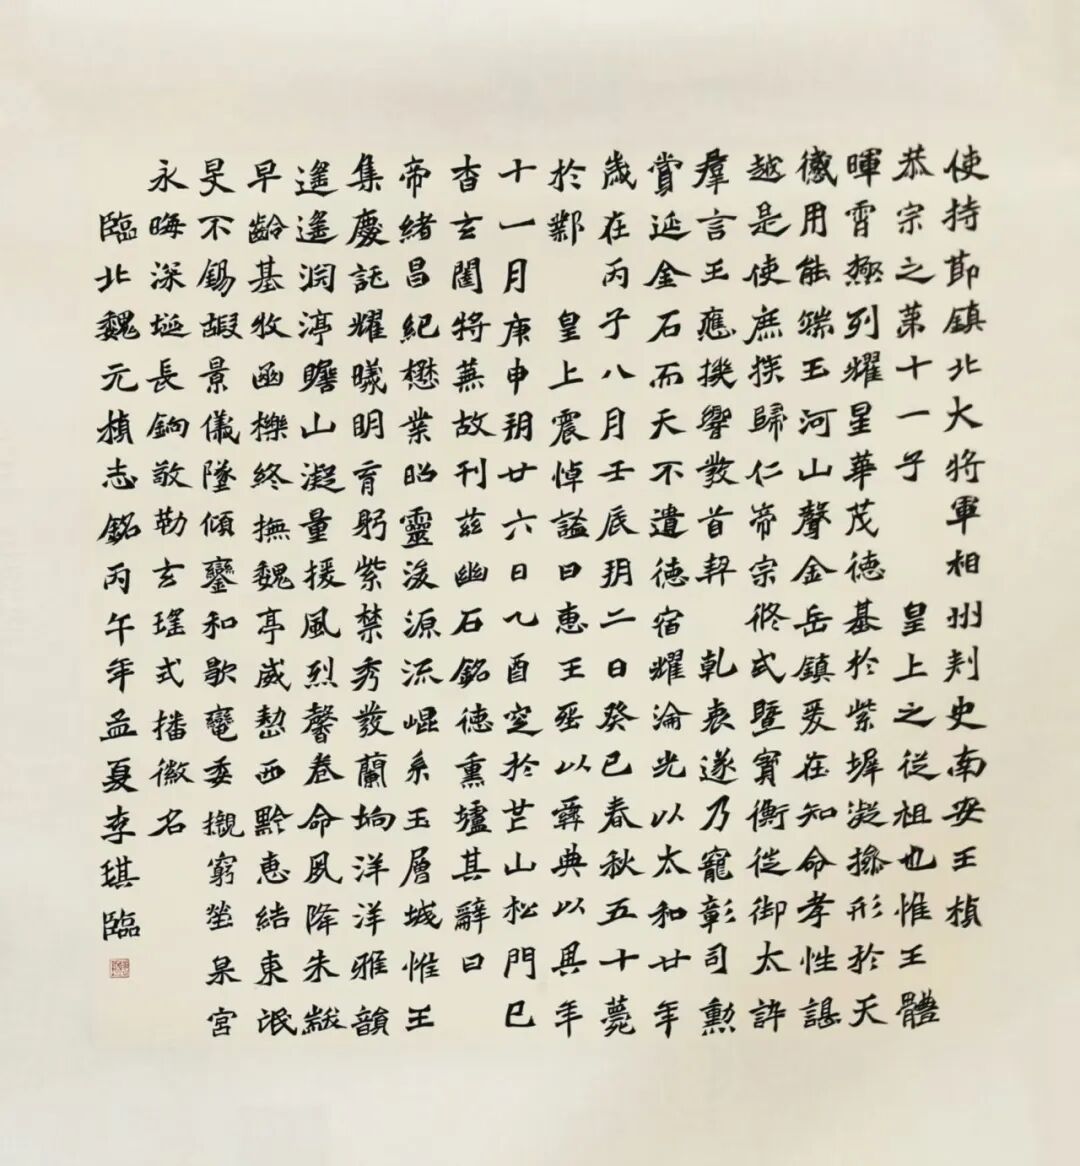 使持節鎮北大將軍相州刺史南安王楨
恭宗之第十一子　皇上之從祖也惟王體
暉霄極列耀星華茂德基於紫墀凝操形於天
感用能端玉河山聲金岳鎮爰在知命孝性諶
越是使庶族歸仁帝宗攸式暨寶衡徙御太訏
羣言王應機響發首契　乾衷遂乃寵彰司勳
賞延金石而天不遺德宿耀淪光以太和廿年
歲在丙子八月壬辰朔二日癸巳春秋五十薨
於鄴　皇上震悼謚曰惠王塟以彝典以其年
十一月庚申朔廿六日乙酉窆於芒山松門已
杳玄闥將蕪故刊茲幽石銘德熏壚其辭曰
帝緒昌紀懋業昭靈浚源流崐系玉層城惟王
集慶託耀曦明育躬紫禁秀發蘭坰洋洋雅韻
遙遙淵渟瞻山凝量援風烈馨卷命夙降朱黻
早齡基牧函櫟終撫魏亭威懃西黔惠結東氓
旻不錫嘏景儀墜傾鑾和歇電委櫬窮塋泉宮
永晦深埏長鐍敬勒玄瑤式播徽名
臨北魏元楨志銘丙午年孟夏李琪臨